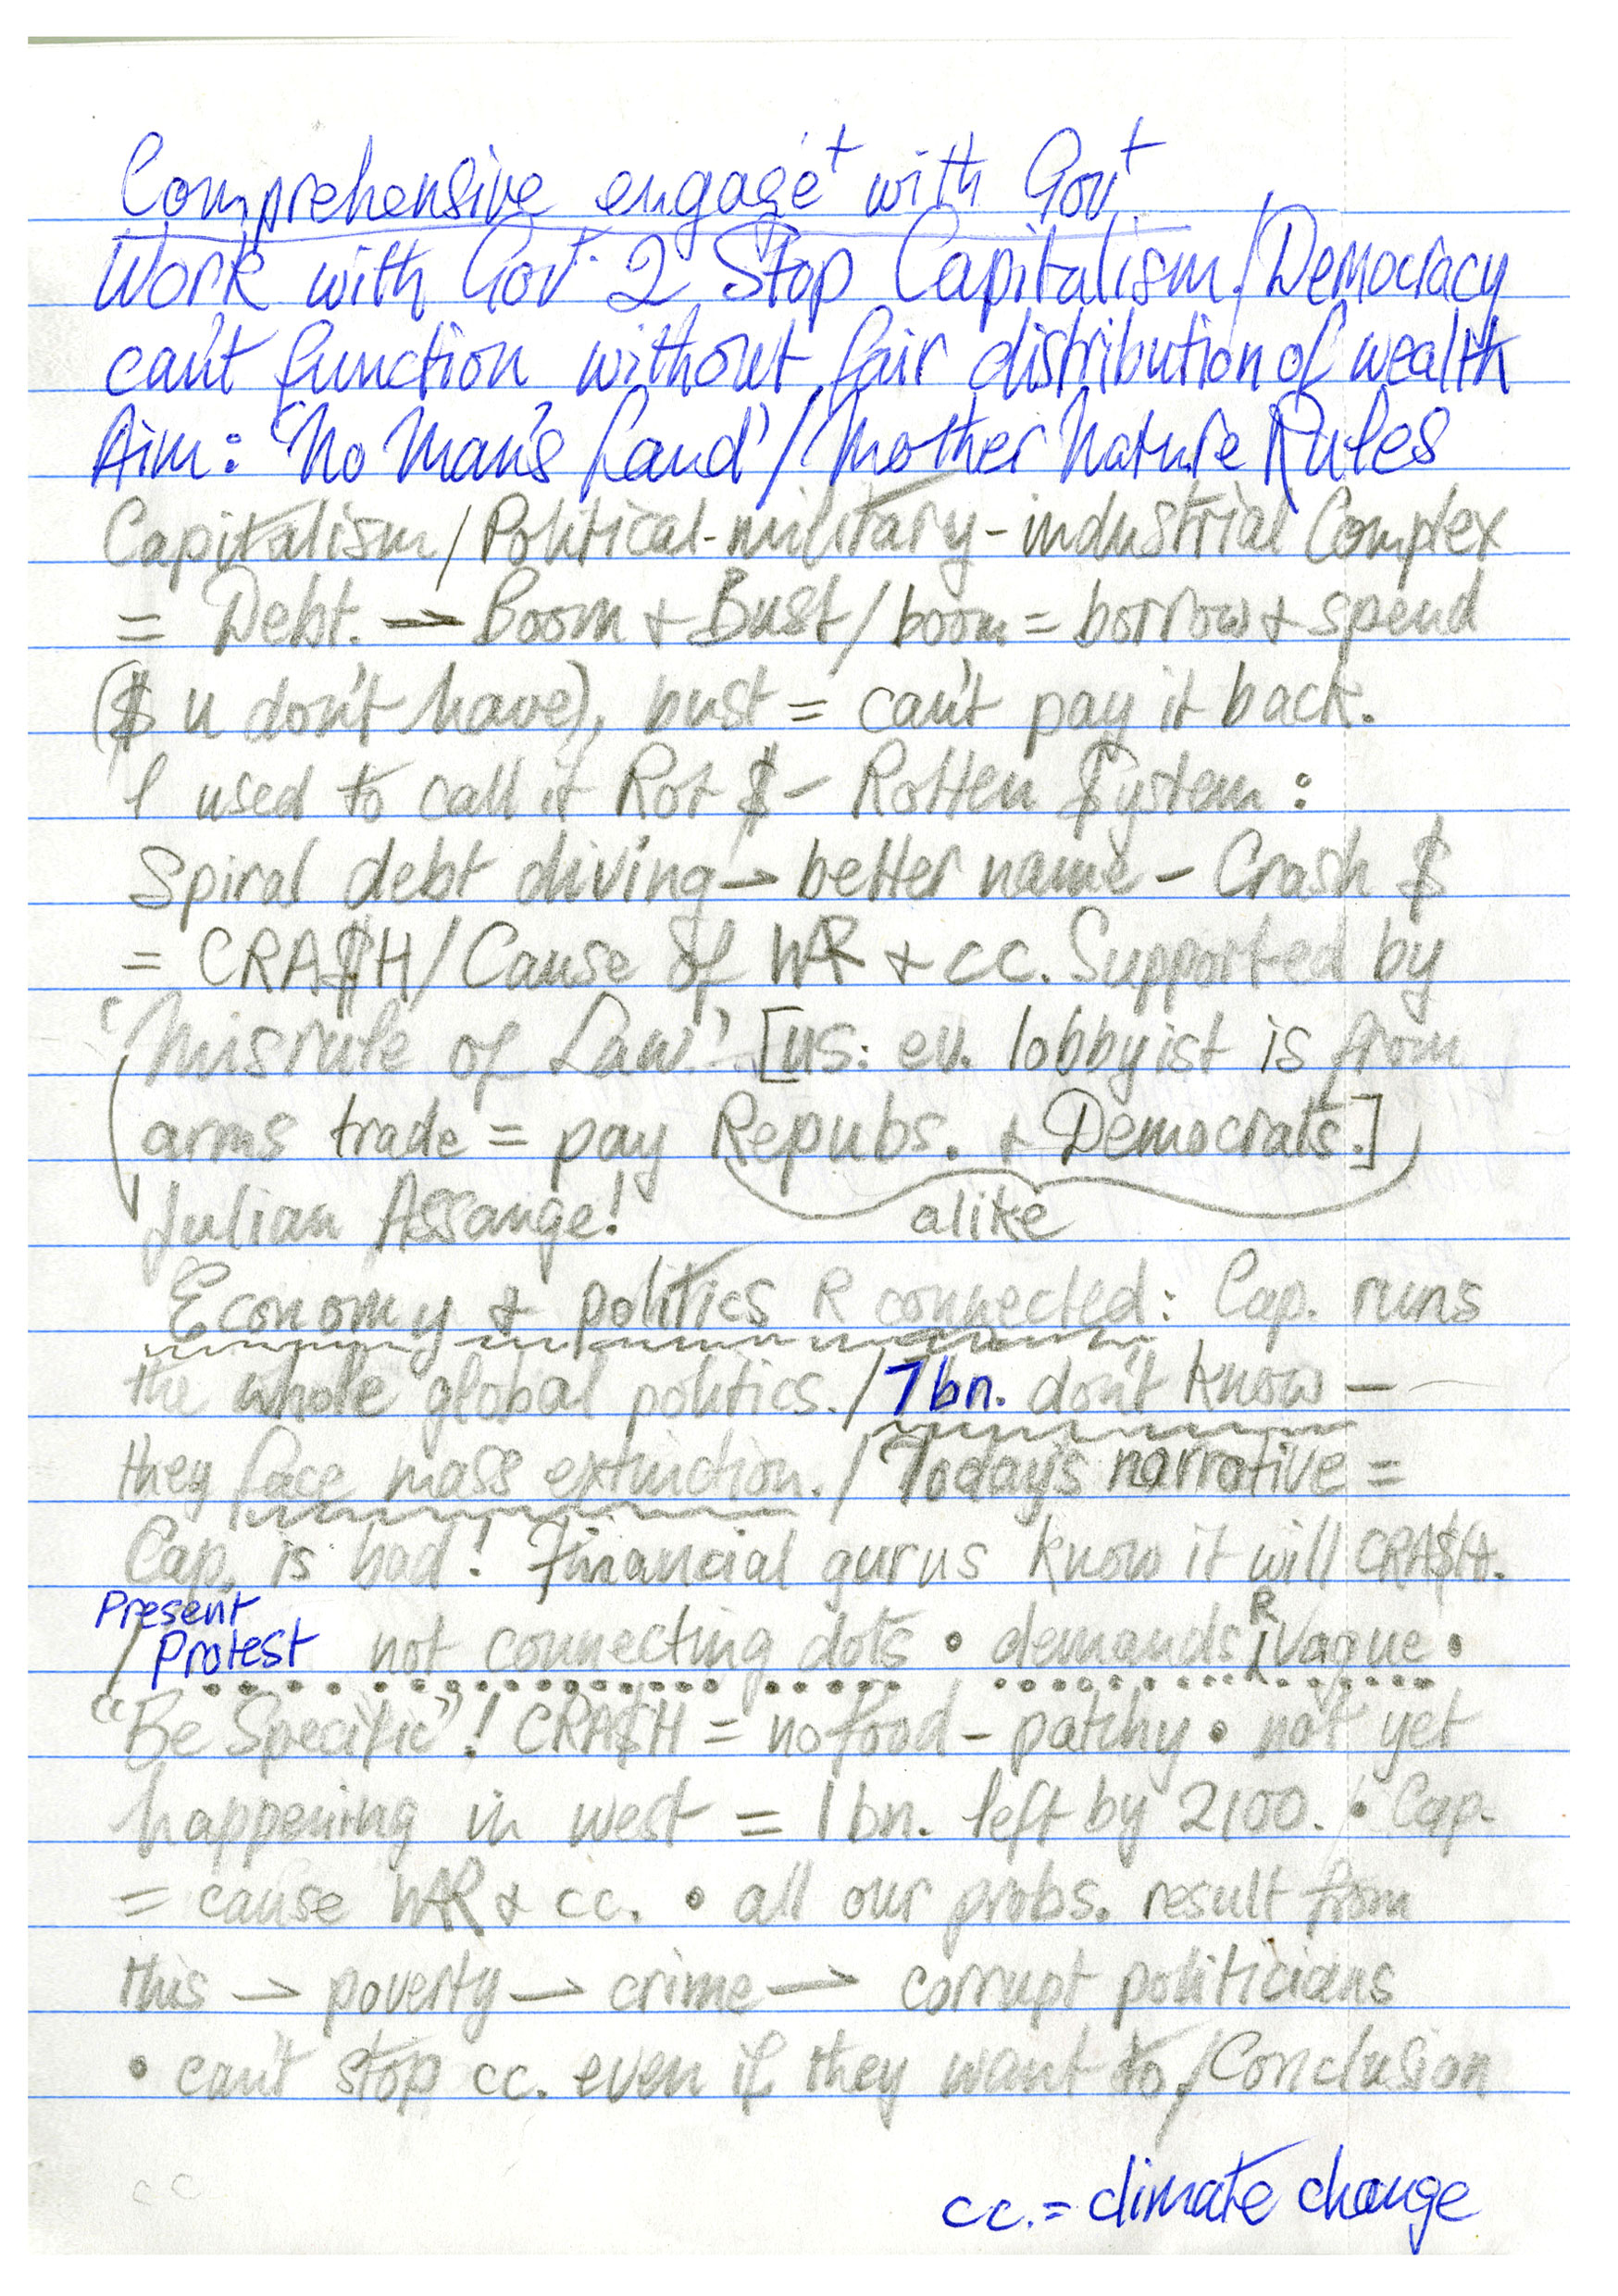 Comprehensive engage^t with Gov^t
Work with Gov^t. 2 Stop Capitalism./Democracy
can't function without fair distribution of wealth
Aim: 'No Man's Land'/Mother Nature Rules
Capitalism/Political-military-industrial Complex
= Debt. → Boom + Bust/boom = borrow + spend
($ u don't have), bust = can't pay it back.
I used to call it Rot $ - Rotten $ystem :
Spiral debt diving → better name - Crash $
= CRA$H/Cause of WAR + cc. Supported by
'Misrule of Law'. [US: ev. lobbyist is from
arms trade = pay Repubs. + Democrats.]
Julian Assange! alike
Economy & politics R connected: Cap. runs
the whole global politics./7bn. don't know -
they face mass extinction./Today's narrative =
Cap. is bad! Financial gurus know it will CRA$H.
Present
/Protest not connecting dots • demands R vague •
"Be Specific"! CRA$H = no food - patchy • not yet
happening in west = 1bn. left by 2100. • Cap.
= cause WAR + cc. • all our probs. result from
this → poverty → crime → corrupt politicians
• can't stop cc. even if they want to./Conclusion
cc
cc. = climate change